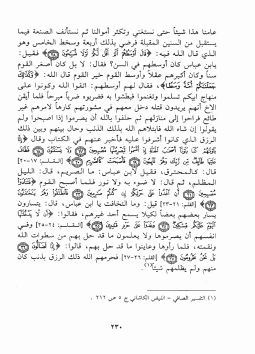 عامنا هذا شيئاً حتى نستغني وتكثر أموالنا ثم نستأنف الصنعة فيما
يستقبل من السنين المقبلة فرضي بذلك أربعة وسخط الخامس وهو
الذي قال الله فيه: ﴿قَالَ أَوْسَطُهُمْ أَلَمْ أَقُلْ لَكُمْ لَوْلَا تُسَبِّحُونَ﴾ فقيل:
يا بن عباس كان أوسطهم في السن؟ فقال: لا بل كان أصغر القوم
سناً وكان أكبرهم عقلاً وأوسط القوم خير القوم قال الله: ﴿وَكَذَلِكَ
جَعَلْنَاكُمْ أُمَّةً وَسَطًا﴾، فقال لهم أوسطهم: اتقوا الله وكونوا على
منهاج أبيكم تسلموا وتغنموا فبطشوا به فضربوه ضرباً مبرحاً فلما أيقن
الأخ أنهم يريدون قتله دخل معهم في مشورتهم كارهاً لأمرهم غير
طائع فراحوا إلى منازلهم ثم حلفوا بالله أن يصرموا إذا أصبحوا ولم
يقولوا إن شاء الله فابتلاهم الله بذلك الذنب وحال بينهم وبين ذلك
الرزق الذي كانوا أشرفوا عليه فأخبر عنهم في الكتاب وقال: ﴿إِنَّا
بَلَوْنَاهُمْ كَمَا بَلَوْنَا أَصْحَابَ الْجَنَّةِ إِذْ أَقْسَمُوا لَيَصْرِمُنَّهَا مُصْبِحِينَ وَلَا يَسْتَثْنُونَ فَطَافَ
عَلَيْهَا طَائِفٌ مِنْ رَبِّكَ وَهُمْ نَائِمُونَ فَأَصْبَحَتْ كَالصَّرِيمِ﴾ [القلم: ١٧-٢٠]
قال: كالمحترق، فقيل لابن عباس: ما الصريم، قال: الليل
المظلم، ثم قال: لا ضوء به ولا نور فلما أصبح القوم ﴿فَتَنَادَوْا
مُصْبِحِينَ أَنِ اغْدُوا عَلَى حَرْثِكُمْ إِنْ كُنْتُمْ صَارِمِينَ فَانْطَلَقُوا وَهُمْ يَتَخَافَتُونَ
[القلم: ٢١-٢٣] قيل: وما التخافت يا ابن عباس، قال: يتسارون
يسار بعضهم بعضاً لكيلا يسمع أحد غيرهم، فقالوا: ﴿أَنْ لَا يَدْخُلَنَّهَا
الْيَوْمَ عَلَيْكُمْ مِسْكِينٌ وَغَدَوْا عَلَى حَرْدٍ قَادِرِينَ﴾ [القلم: ٢٤-٢٥] وفي
أنفسهم أن يصرموها ولا يعلمون ما قد حل بهم من سطوات الله
ونقمته، فلما رأوها وعاينوا ما قد حل بهم، قالوا: ﴿إِنَّا لَضَالُّونَ
بَلْ نَحْنُ مَحْرُومُونَ﴾ [القلم: ٢٦-٢٧] فحرمهم الله ذلك الرزق بذنب كان
منهم ولم يظلمهم شيئاً(١).
(١) التفسير الصافي - الفيض الكاشاني ج ٥ ص ٢١٢ .
٢٣٠